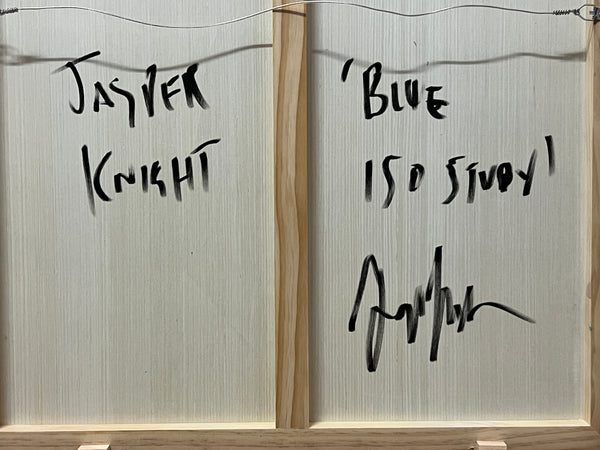 JASPER
KNIGHT
'BLUE
ISO STUDY'